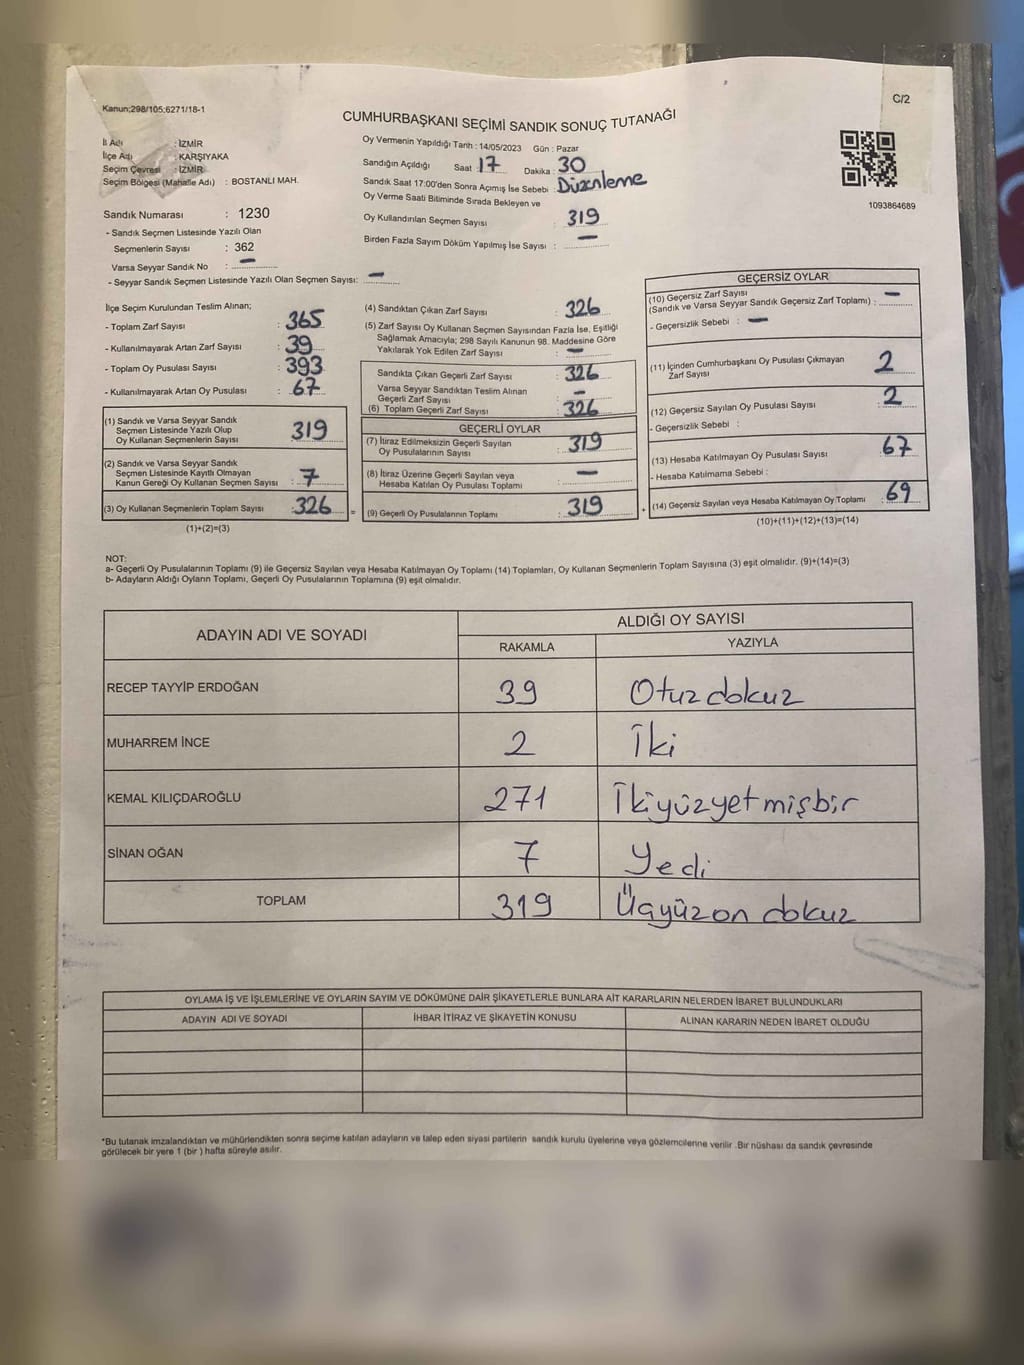 Kanun;298/105;6271/18-1
C/2
CUMHURBAŞKANI SEÇİMİ SANDIK SONUÇ TUTANAĞI
İl Adı : İZMİR
İlçe Adı : KARŞIYAKA
Seçim Çevresi : İZMİR
Seçim Bölgesi (Mahalle Adı) : BOSTANLI MAH.
Sandık Numarası : 1230
- Sandık Seçmen Listesinde Yazılı Olan
Seçmenlerin Sayısı : 362
Varsa Seyyar Sandık No : —
- Seyyar Sandık Seçmen Listesinde Yazılı Olan Seçmen Sayısı: —
Oy Vermenin Yapıldığı Tarih : 14/05/2023 Gün : Pazar
Sandığın Açıldığı Saat : 17 Dakika : 30
Sandık Saat 17:00'den Sonra Açımış İse Sebebi : Düzenleme
Oy Verme Saati Bitiminde Sırada Bekleyen ve
Oy Kullandırılan Seçmen Sayısı 319
Birden Fazla Sayım Döküm Yapılmış İse Sayısı : —
1093864689
İlçe Seçim Kurulundan Teslim Alınan;
- Toplam Zarf Sayısı : 365
- Kullanılmayarak Artan Zarf Sayısı : 39
- Toplam Oy Pusulası Sayısı : 393
- Kullanılmayarak Artan Oy Pusulası : 67
(1) Sandık ve Varsa Seyyar Sandık
Seçmen Listesinde Yazılı Olup
Oy Kullanan Seçmenlerin Sayısı 319
(2) Sandık ve Varsa Seyyar Sandık
Seçmen Listesinde Kayıtlı Olmayan
Kanun Gereği Oy Kullanan Seçmen Sayısı : 7
(3) Oy Kullanan Seçmenlerin Toplam Sayısı : 326
(1)+(2)=(3)
(4) Sandıktan Çıkan Zarf Sayısı : 326
(5) Zarf Sayısı Oy Kullanan Seçmen Sayısından Fazla İse, Eşitliği
Sağlamak Amacıyla; 298 Sayılı Kanunun 98. Maddesine Göre
Yakılarak Yok Edilen Zarf Sayısı : —
Sandıkta Çıkan Geçerli Zarf Sayısı : 326
Varsa Seyyar Sandıktan Teslim Alınan
Geçerli Zarf Sayısı : —
(6) Toplam Geçerli Zarf Sayısı : 326
GEÇERLİ OYLAR
(7) İtiraz Edilmeksizin Geçerli Sayılan
Oy Pusulalarının Sayısı : 319
(8) İtiraz Üzerine Geçerli Sayılan veya
Hesaba Katılan Oy Pusulası Toplamı : —
= (9) Geçerli Oy Pusulalarının Toplamı : 319
GEÇERSİZ OYLAR
(10) Geçersiz Zarf Sayısı
(Sandık ve Varsa Seyyar Sandık Geçersiz Zarf Toplamı) : —
- Geçersizlik Sebebi : —
(11) İçinden Cumhurbaşkanı Oy Pusulası Çıkmayan
Zarf Sayısı 2
(12) Geçersiz Sayılan Oy Pusulası Sayısı : 2
- Geçersizlik Sebebi :
(13) Hesaba Katılmayan Oy Pusulası Sayısı : 67
- Hesaba Katılmama Sebebi :
+ (14) Geçersiz Sayılan veya Hesaba Katılmayan Oy Toplamı : 69
(10)+(11)+(12)+(13)=(14)
NOT:
a- Geçerli Oy Pusulalarının Toplamı (9) ile Geçersiz Sayılan veya Hesaba Katılmayan Oy Toplamı (14) Toplamları, Oy Kullanan Seçmenlerin Toplam Sayısına (3) eşit olmalıdır. (9)+(14)=(3)
b- Adayların Aldığı Oyların Toplamı, Geçerli Oy Pusulalarının Toplamına (9) eşit olmalıdır.
ADAYIN ADI VE SOYADI ALDIĞI OY SAYISI
RAKAMLA YAZIYLA
RECEP TAYYİP ERDOĞAN 39 Otuzdokuz
MUHARREM İNCE 2 İki
KEMAL KILIÇDAROĞLU 271 İkiyüzyetmişbir
SİNAN OĞAN 7 Yedi
TOPLAM 319 Üçyüzon dokuz
OYLAMA İŞ VE İŞLEMLERİNE VE OYLARIN SAYIM VE DÖKÜMÜNE DAİR ŞİKAYETLERLE BUNLARA AİT KARARLARIN NELERDEN İBARET BULUNDUKLARI
ADAYIN ADI VE SOYADI İHBAR İTİRAZ VE ŞİKAYETİN KONUSU ALINAN KARARIN NEDEN İBARET OLDUĞU
*Bu tutanak imzalandıktan ve mühürlendikten sonra seçime katılan adayların ve talep eden siyasi partilerin sandık kurulu üyelerine veya gözlemcilerine verilir. Bir nüshası da sandık çevresinde
görülecek bir yere 1 (bir ) hafta süreyle asılır.